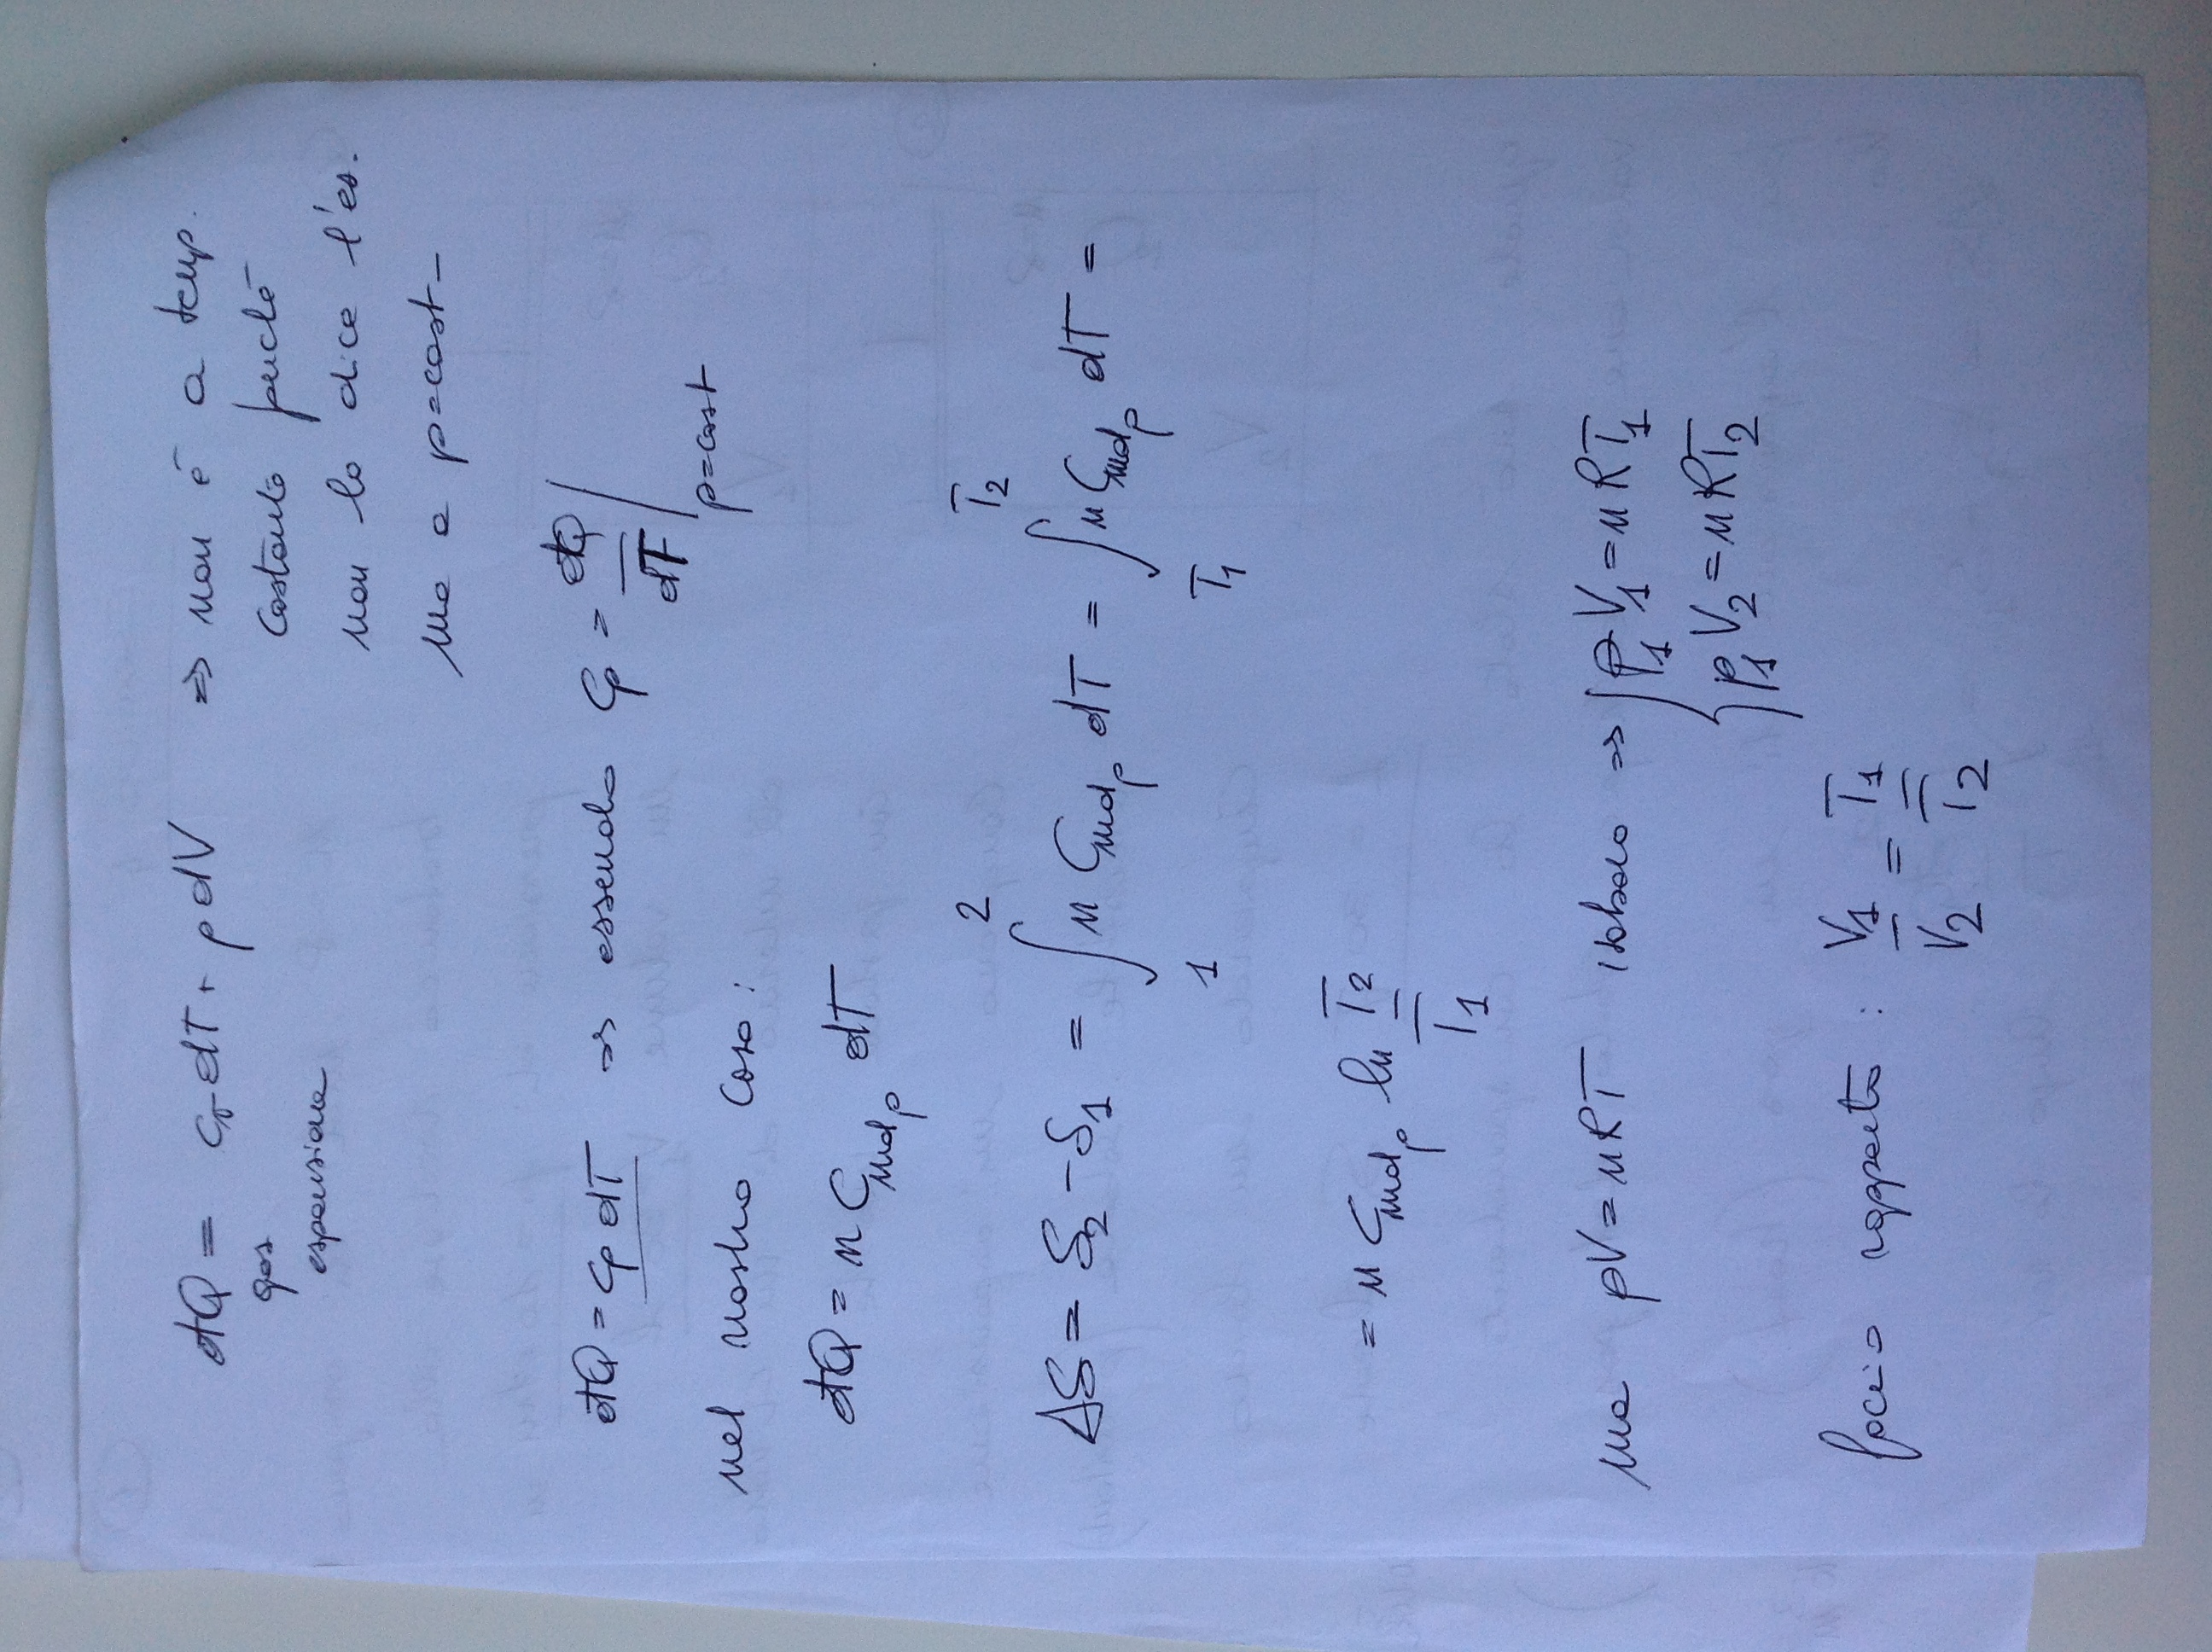 đQ = cv dT + p dV ⇒ non è a temp.
gas costante perché
espansione non lo dice l'es.
ma a p=cost –
đQ = cp dT ⇒ essendo cp = đQ/dT |p=cost
nel nostro caso:
đQ = n Cmolp dT
ΔS = S2 – S1 = ∫₁² n Cmolp dT = ∫T1^T2 n Cmolp dT =
= n Cmolp ln T2/T1
ma pV = nRT isobara ⇒ { p1 V1 = nRT1
p1 V2 = nRT2
faccio rapporto : V1/V2 = T1/T2